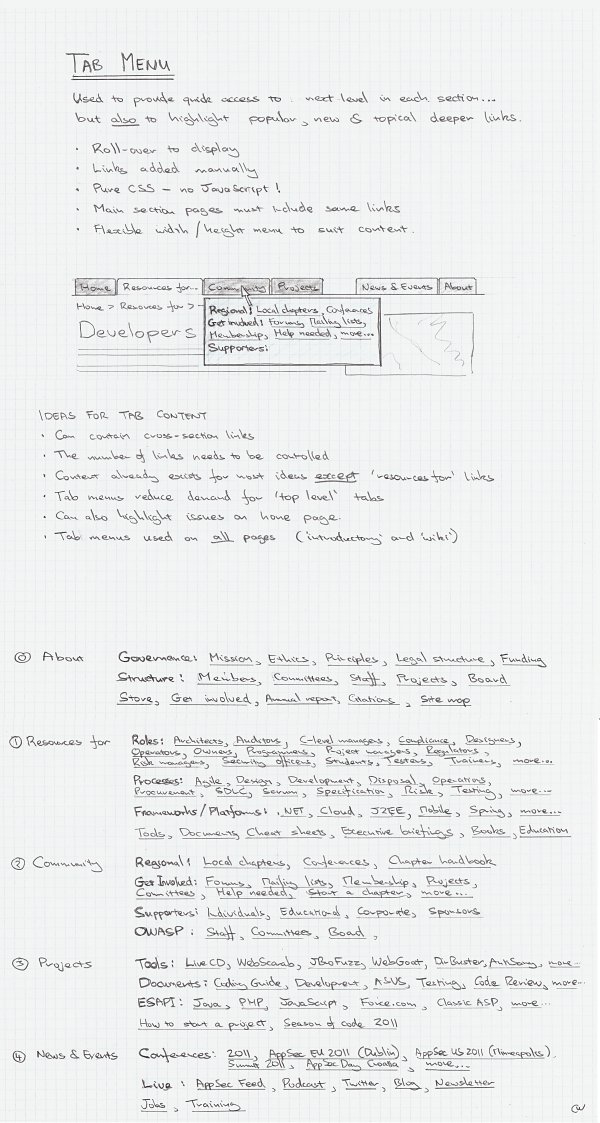 TAB MENU
Used to provide quick access to : next level in each section...
but also to highlight popular, new & topical deeper links.
· Roll-over to display
· Links added manually
· Pure CSS – no JavaScript!
· Main section pages must include same links
· Flexible width / height menu to suit content.
Home Resources for... Community Projects News & Events About
Home > Resources for >
Regional: Local chapters, Conferences
Get Involved: Forums, Mailing lists,
Developers
Membership, Help needed, more...
Supporters:
IDEAS FOR TAB CONTENT
· Can contain cross-section links
· The number of links needs to be controlled
· Content already exists for most ideas except 'resources for' links
· Tab menus reduce demand for 'top level' tabs
· Can also highlight issues on home page.
· Tab menus used on all pages ('introductory' and 'wiki')
⓪ About Governance: Mission, Ethics, Principles, Legal structure, Funding
Structure: Members, Committees, Staff, Projects, Board
Store, Get involved, Annual report, Citations, Site map
① Resources for Roles: Architects, Auditors, C-level managers, Compliance, Designers,
Operators, Owners, Programmers, Project managers, Regulators,
Risk managers, Security officers, Students, Testers, Trainers, more...
Processes: Agile, Design, Development, Disposal, Operations,
Procurement, SDLC, Scrum, Specification, Risk, Testing, more...
Frameworks/Platforms: .NET, Cloud, J2EE, Mobile, Spring, more...
Tools, Documents, Cheat sheets, Executive briefings, Books, Education
② Community Regional: Local chapters, Conferences, Chapter handbook
Get Involved: Forums, Mailing lists, Membership, Projects,
Committees, Help needed, Start a chapter, more...
Supporters: Individuals, Educational, Corporate, Sponsors
OWASP: Staff, Committees, Board,
③ Projects Tools: Live CD, WebScarab, JBroFuzz, WebGoat, DirBuster, AntiSamy, more...
Documents: Coding Guide, Development, ASVS, Testing, Code Review, more...
ESAPI: Java, PHP, JavaScript, Force.com, Classic ASP, more...
How to start a project, Season of code 2011
④ News & Events Conferences: 2011, AppSec EU 2011 (Dublin), AppSec US 2011 (Minneapolis),
Summit 2011, AppSec Day Croatia, more...
Live: AppSec Feed, Podcast, Twitter, Blog, Newsletter
Jobs, Training